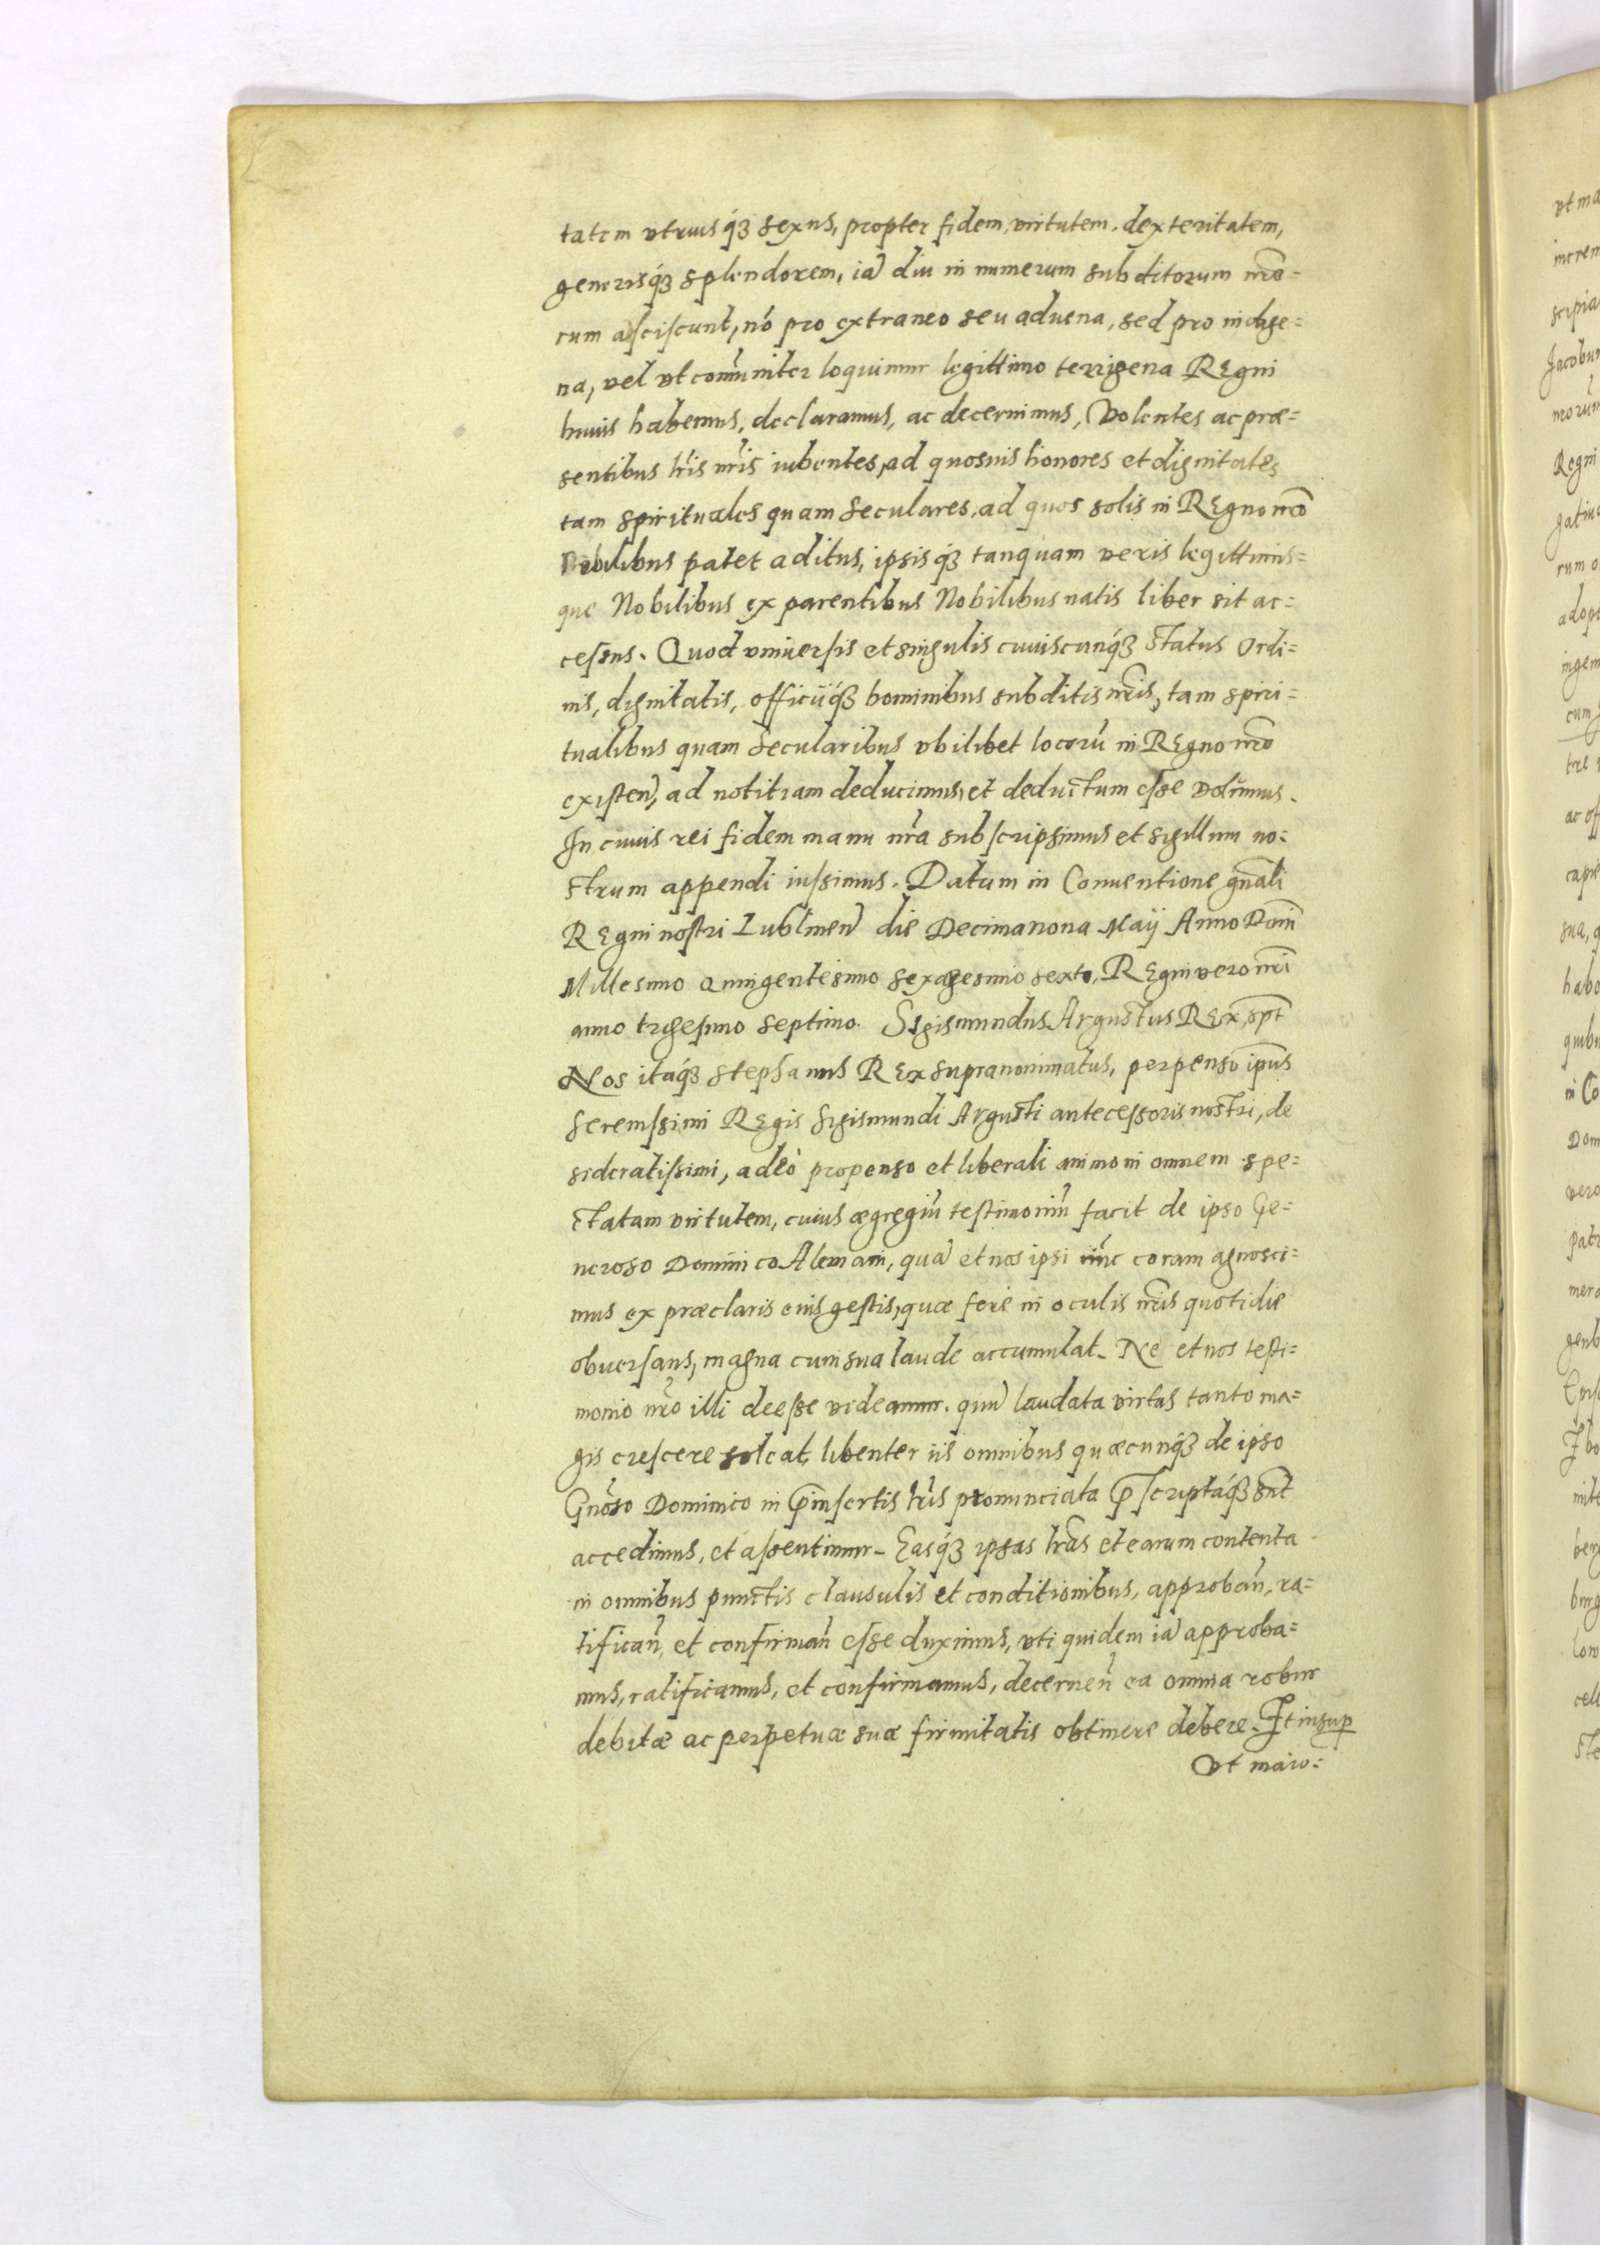 tatem vtriusq́ꝫ sexus, propter fidem, virtutem, dexteritatem,
generisq́ꝫ splendorem, iã diu in numerum subditorum nr̃o=
rum asciscunt, nõ pro extraneo seu aduena, sed pro indige=
na, vel vt com̃uniter loquimur legittimo terrigena Regni
huius habemus, declaramus, ac decernimus, Volentes ac præ=
sentibus lr̃is nr̃is iubentes, ad quosuis honores et dignitates
tam spirituales quam seculares, ad quos solis in Regno nr̃o
Nobilibus patet aditus, ipsisq́ꝫ tanquam veris legittimis=
que Nobilibus ex parentibus Nobilibus natis liber sit ac=
cessus. Quod vniuersis et singulis cuiuscunq́ꝫ status Ordi=
nis, dignitatis, officiiq́ꝫ hominibus subditis nr̃is, tam spiri=
tualibus quam Secularibus vbilibet locorũ in Regno nr̃o
existen̄, ad notitiam deducimus, et deductum esse volumus.
In cuius rei fidem manu nr̃a subscripsimus et sigillum no=
strum appendi iussimus. Datum in Conuentione gn̄ali
Regni nostri Lublinen̄ die Decimanona Maij Anno Dom̄
Millesimo Quingentesimo sexagesimo sexto, Regni vero nr̃i
anno trigesimo septimo. Sigismundus Augustus Rex, spt̄
Nos itaq́ꝫ Stephanus Rex supranominatus, perpenso ip̄ius
Serenissimi Regis Sigismundi Augusti antecessoris nostri, de
sideratissimi, adeò propenso et liberali animo in omnem spe=
ctatam virtutem, cuius ægregiũ testimoniũ facit de ipso Ge=
neroso Dominico Alemani, quã et nos ipsi nũc coram agnosci=
mus ex præclaris eius gestis, quæ fere in oculis nr̃is quotidie
obuersans, magna cum sua laude accumulat. Ne et nos testi=
monio nr̃o illi deesse videamur. qum̄ laudata virtus tanto ma=
gis crescere soleat, libenter iis omnibus quæcunq́ꝫ de ipso
Gn̄oso Dominico in p̄insertis lr̃is pronunciata p̄scriptáq́ꝫ sn̄t
accedimus, et assentimur. Easq́ꝫ ipsas lr̃as et earum contenta
in omnibus punctis clausulis et conditionibus, approban̄, ra=
tifican̄, et confirman̄ esse duximus, vti quidem iã approba=
mus, ratificamus, et confirmamus, decernen̄ ea omnia robur
debitæ ac perpetuæ suæ firmitatis obtinere debere. Et insup̄
Vt maio=